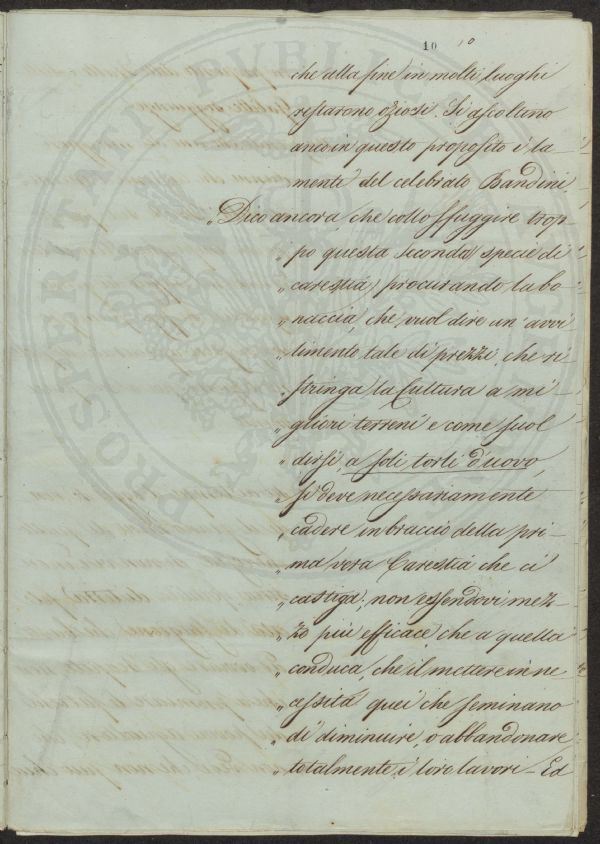 10 10
che alla fine in molti luoghi
restarono oziosi. Si ascoltino
anco in questo proposito i la
menti del celebrato Bandini
„Dico ancora, che collo sfuggire trop
„ po questa seconda specie di
„ carestia, procurando la bo-
„ naccia, che vuol dire un' avvi
„ limento tale di prezzi, che ri
„ stringa la Cultura a mi-
„ gliori terreni e come suol
„ dirsi, a soli torli d'uovo,
„ si deve necessariamente
„ cadere in braccio della pri-
„ ma vera Carestia che ci
„ castiga; non essendovi mez-
„ zo più efficace, che a quella
„ conduca, che il mettere in ne
„ cessità quei che seminano
„ di diminuire, o abbandonare
„ totalmente i loro lavori - Ed
PROSPERITATI PVBLICAE